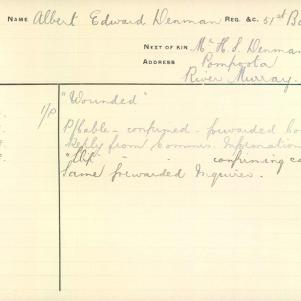 NAME Albert Edward Denman REG. &C. 51st Ba
NEXT OF KIN Mr H. S. Denman
ADDRESS Pompoota
River Murray.
"Wounded"
1/P
P/Cable - confirmed - forwarded Co
Reply from Commrs. Information
" " - confirming ca
Same forwarded Inquirer.